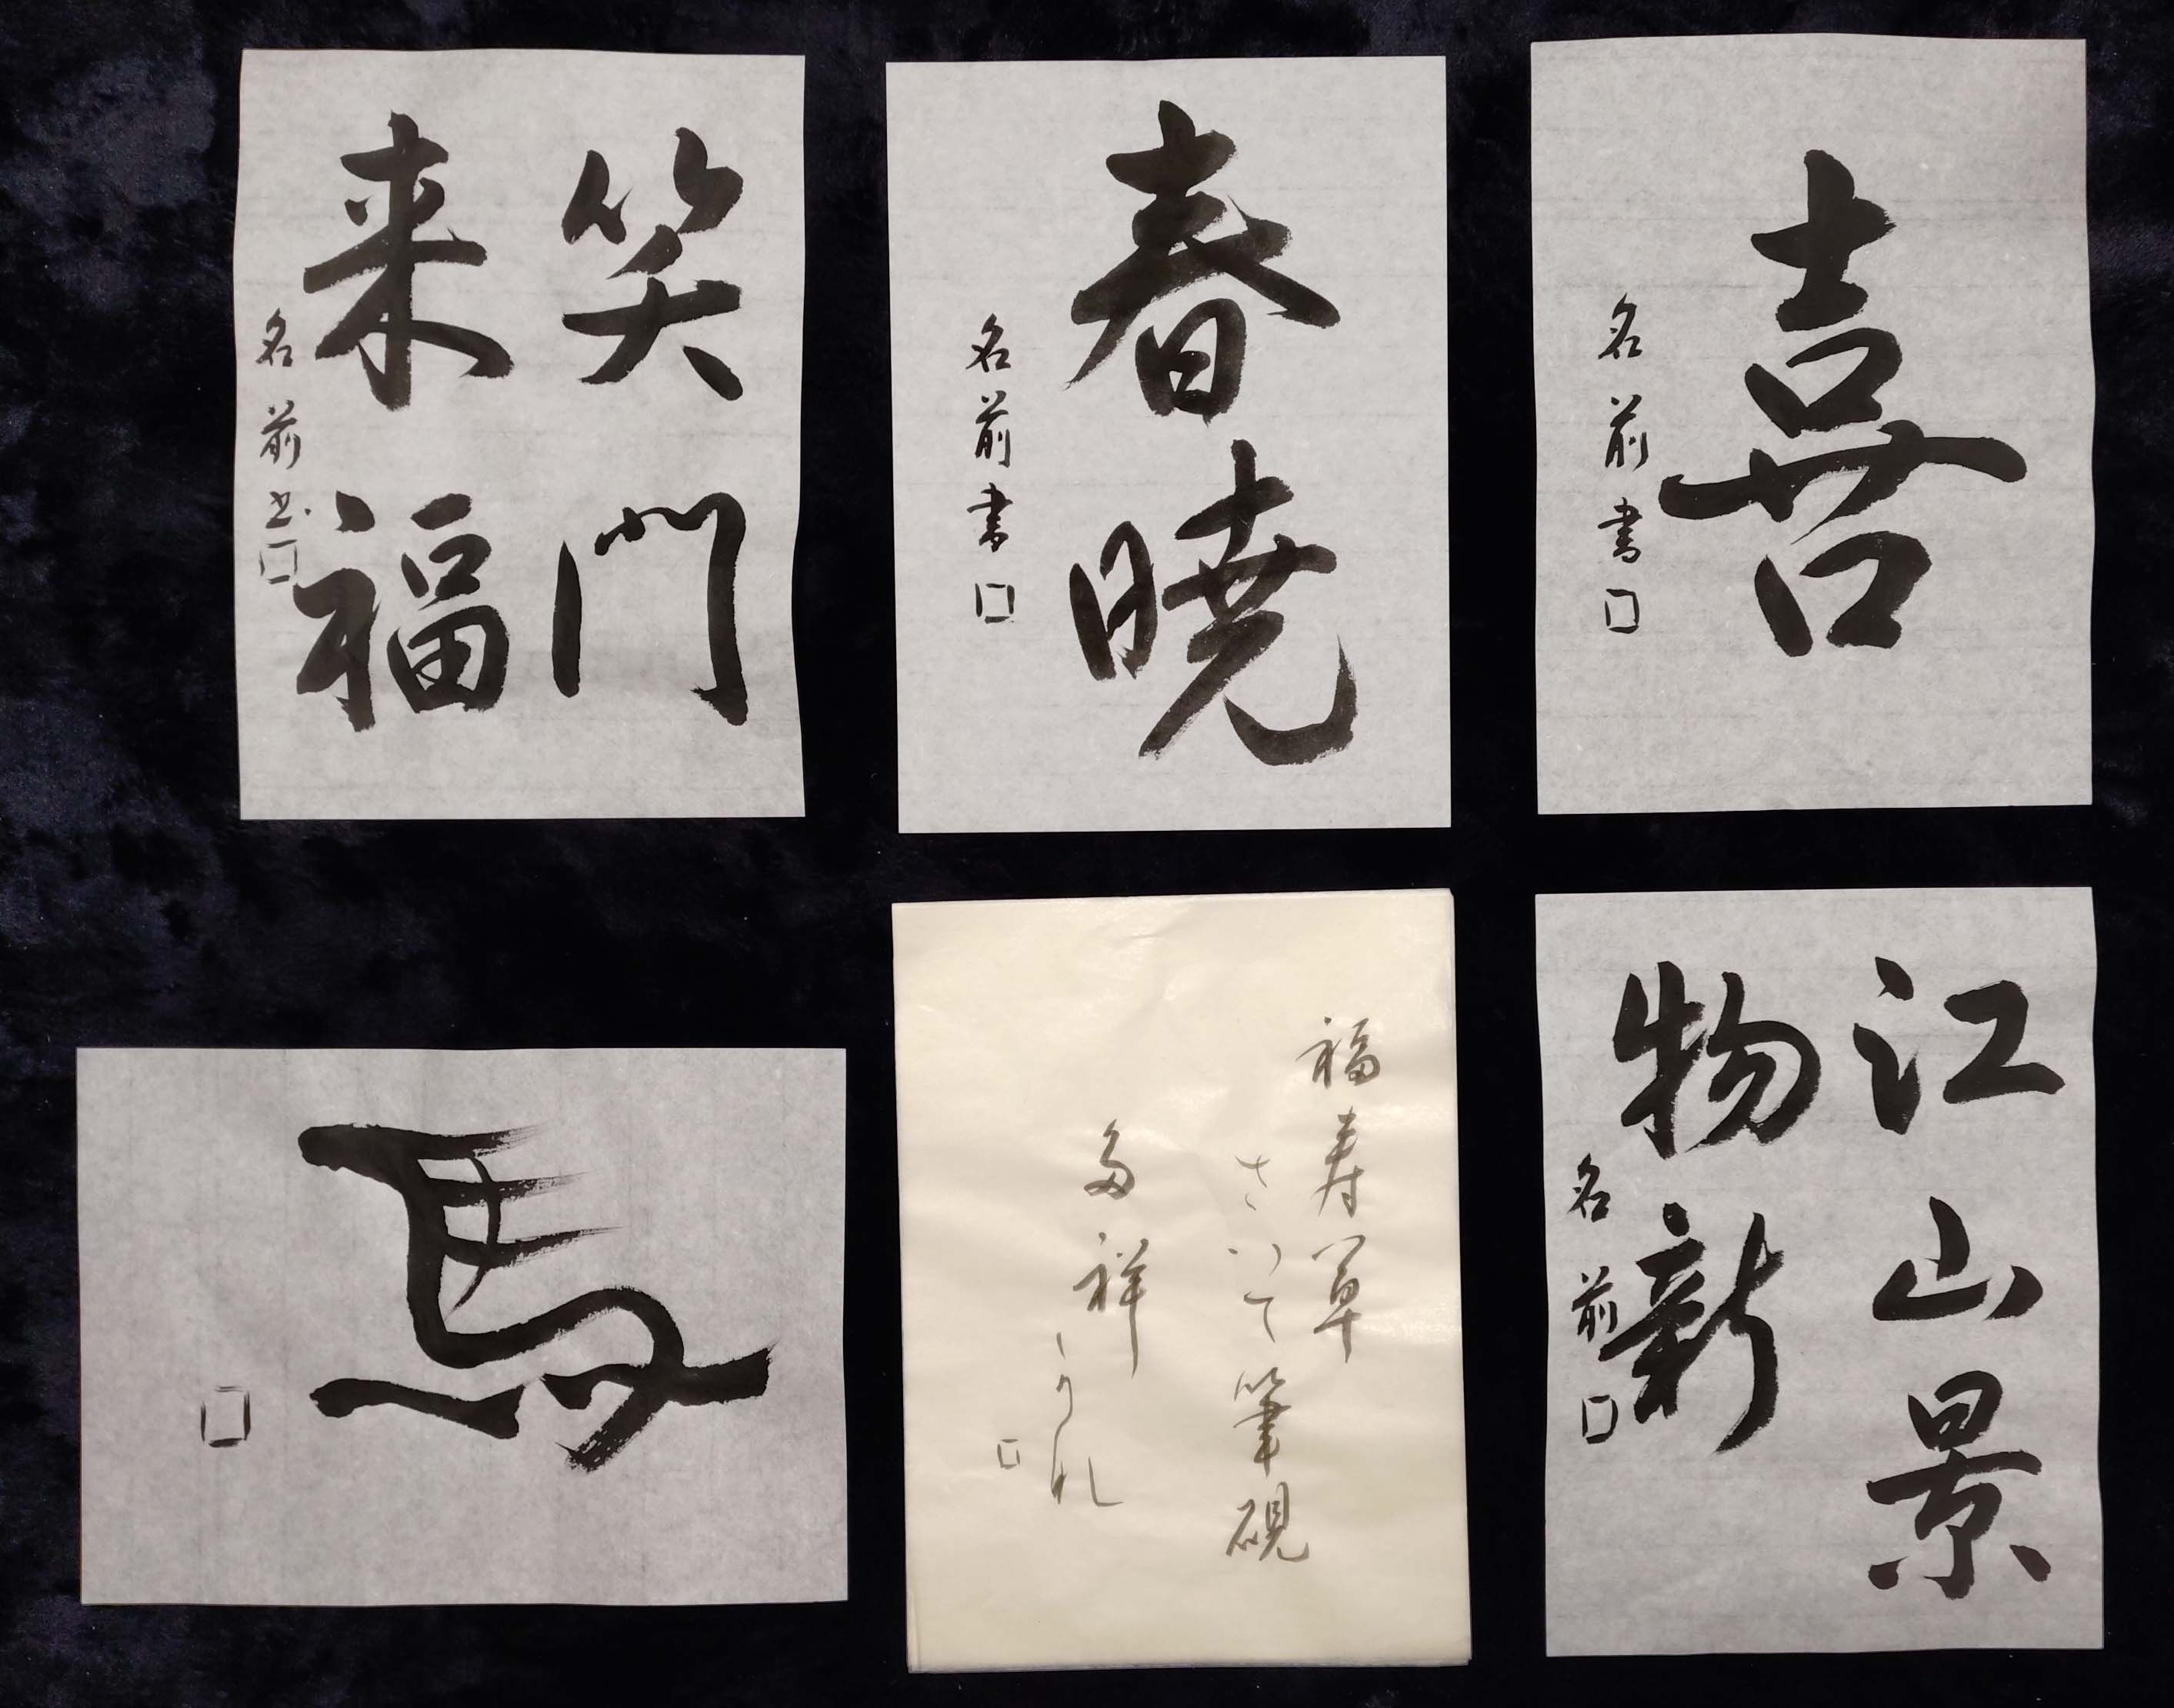 喜
名前書
春
暁
名前書
笑門
来福
名前书
江山景
物新
名前
福寿草
さいて筆硯
多祥
馬